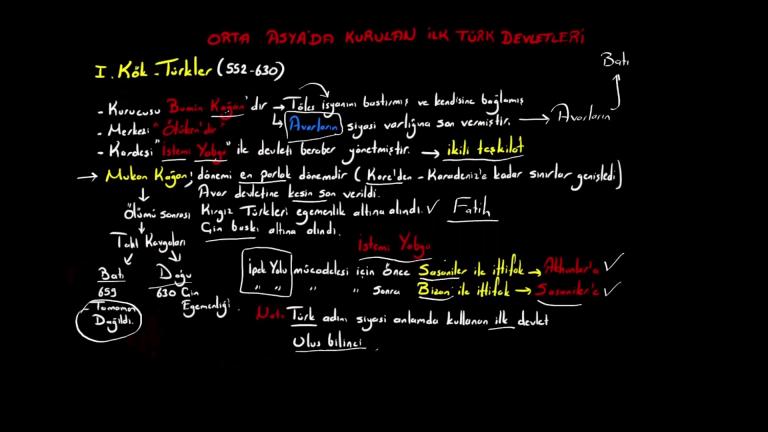 ORTA ASYA'DA KURULAN İLK TÜRK DEVLETLERİ
I. Kök-Türkler (552-630)
Batı
- Kurucusu "Bumin Kağan"dır → Töles isyanını bastırmış ve kendisine bağlamış
- Merkezi "Ötüken'dir" ↳ Avarların siyasi varlığına son vermiştir. → Avarların
- Kardeşi "İstemi Yabgu" ile devleti beraber yönetmiştir. → ikili teşkilat
→ Mukan Kağan; dönemi en parlak dönemdir (Kore'den - Karadeniz'e kadar sınırlar genişledi)
Avar devletine kesin son verildi.
Ölümü sonrası Kırgız Türkleri egemenlik altına alındı. ✓ Fatih
Çin baskı altına alındı.
Taht Kavgaları
İstemi Yabgu
Batı Doğu
659 630 Çin Egemenliği
- Tamamen Dağıldı.
İpek Yolu mücadelesi için önce Sasaniler ile ittifak → Akhunlar'a ✓
" " " " Sonra Bizans ile ittifak → Sasaniler'e ✓
Not: Türk adını siyasi anlamda kullanan ilk devlet
Ulus bilinci.